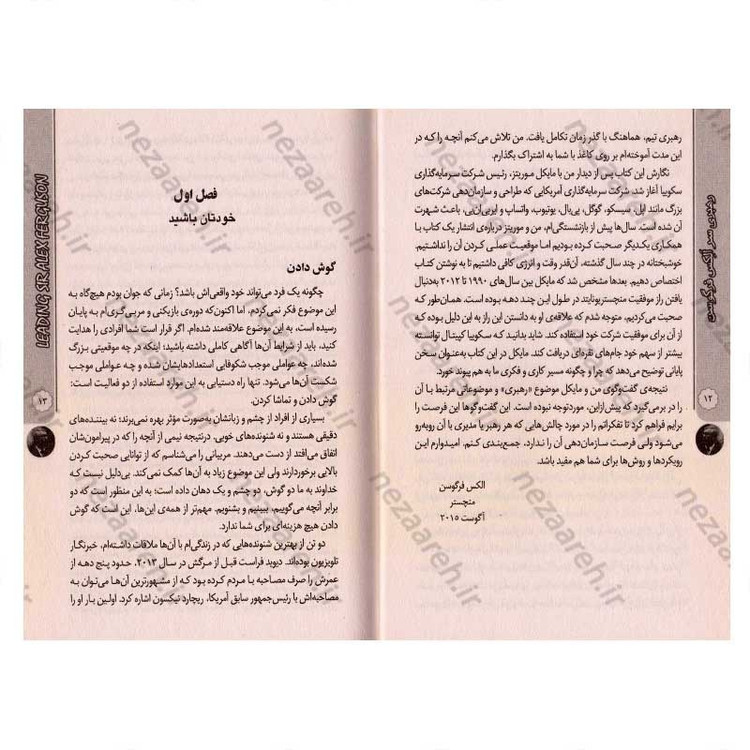 رهبری تیم، هماهنگ با گذر زمان تکامل یافت. من تلاش می‌کنم آنچه را که در
این مدت آموخته‌ام بر روی کاغذ با شما به اشتراک بگذارم.
نگارش این کتاب پس از دیدار من با مایکل موریتز، رئیس شرکت سرمایه‌گذاری
سکویا آغاز شد. شرکت سرمایه‌گذاری آمریکایی که طراحی و سازمان‌دهی شرکت‌های
بزرگ مانند اپل، سیسکو، گوگل، پی‌پال، یوتیوب، واتساپ و ایربی‌ان‌بی، باعث شهرت
آن شده است. سال‌ها پیش از بازنشستگی‌ام، من و موریتز درباره‌ی انتشار یک کتاب با
همکاری یکدیگر صحبت کرده بودیم اما موقعیت عملی کردن آن را نداشتیم.
خوشبختانه در چند سال گذشته، آن‌قدر وقت و انرژی کافی داشتیم تا به نوشتن کتاب
اختصاص دهیم. بعدها مشخص شد که مایکل بین سال‌های ۱۹۹۰ تا ۲۰۱۲ به‌دنبال
یافتن راز موفقیت منچستریونایتد در طول این چند دهه بوده است. همان‌طور که
صحبت می‌کردیم، متوجه شدم که علاقه‌ی او به دانستن این راز به این دلیل بوده که
از آن برای موفقیت شرکت خود استفاده کند. شاید بدانید که سکویا کپیتال توانسته
بیشتر از سهم خود جام‌های نقره‌ای دریافت کند. مایکل در این کتاب به‌عنوان سخن
پایانی توضیح می‌دهد که چرا و چگونه مسیر کاری و فکری ما به هم پیوند خورد.
نتیجه‌ی گفت‌وگوی من و مایکل موضوع «رهبری» و موضوعاتی مرتبط با آن
را در برمی‌گیرد که پیش‌ازاین، موردتوجه نبوده است. این گفت‌وگوها این فرصت را
برایم فراهم کرد تا تفکراتم را در مورد چالش‌هایی که هر رهبر یا مدیری با آن روبه‌رو
می‌شود ولی فرصت سازمان‌دهی آن را ندارد، جمع‌بندی کنم. امیدوارم این
رویکردها و روش‌ها برای شما هم مفید باشد.
الکس فرگوسن
منچستر
آگوست ۲۰۱۵
رهبری سر الکس فرگوسن
۱۲
فصل اول
خودتان باشید
گوش دادن
چگونه یک فرد می‌تواند خود واقعی‌اش باشد؟ زمانی که جوان بودم هیچ‌گاه به
این موضوع فکر نمی‌کردم. اما اکنون‌که دوره‌ی بازیکنی و مربی‌گری‌ام به پایان
رسیده است، به این موضوع علاقه‌مند شده‌ام. اگر قرار است شما افرادی را هدایت
کنید، باید از شرایط آن‌ها آگاهی کاملی داشته باشید؛ اینکه در چه موقعیتی بزرگ
شده‌اند، چه عواملی موجب شکوفایی استعدادهایشان شده و چه عواملی موجب
شکست آن‌ها می‌شود. تنها راه دستیابی به این موارد استفاده از دو فعالیت است:
گوش دادن و تماشا کردن.
بسیاری از افراد از چشم و زبانشان به‌صورت مؤثر بهره نمی‌برند؛ نه بیننده‌های
دقیقی هستند و نه شنونده‌های خوبی. درنتیجه نیمی از آنچه را که در پیرامون‌شان
اتفاق می‌افتد از دست می‌دهند. مربیانی را می‌شناسم که از توانایی صحبت کردن
بالایی برخوردارند ولی این موضوع زیاد به آن‌ها کمک نمی‌کند. بی‌دلیل نیست که
خداوند به ما دو گوش، دو چشم و یک دهان داده است؛ به این منظور است که دو
برابر آنچه می‌گوییم، ببینیم و بشنویم. مهم‌تر از همه‌ی این‌ها، این است که گوش
دادن هیچ هزینه‌ای برای شما ندارد.
دو تن از بهترین شنونده‌هایی که در زندگی‌ام با آن‌ها ملاقات داشته‌ام، خبرنگار
تلویزیون بوده‌اند. دیوید فراست قبل از مرگش در سال ۲۰۱۳، حدود پنج دهه از
عمرش را صرف مصاحبه با مردم کرده بود که از مشهورترین آن‌ها می‌توان به
مصاحبه‌اش با رئیس‌جمهور سابق آمریکا، ریچارد نیکسون اشاره کرد. اولین بار او را
LEADING SIR ALEX FERGUSON
۱۳
nezaareh.ir
nezaareh.ir
nezaareh.ir
nezaareh.ir
nezaareh.ir
nezaareh.ir